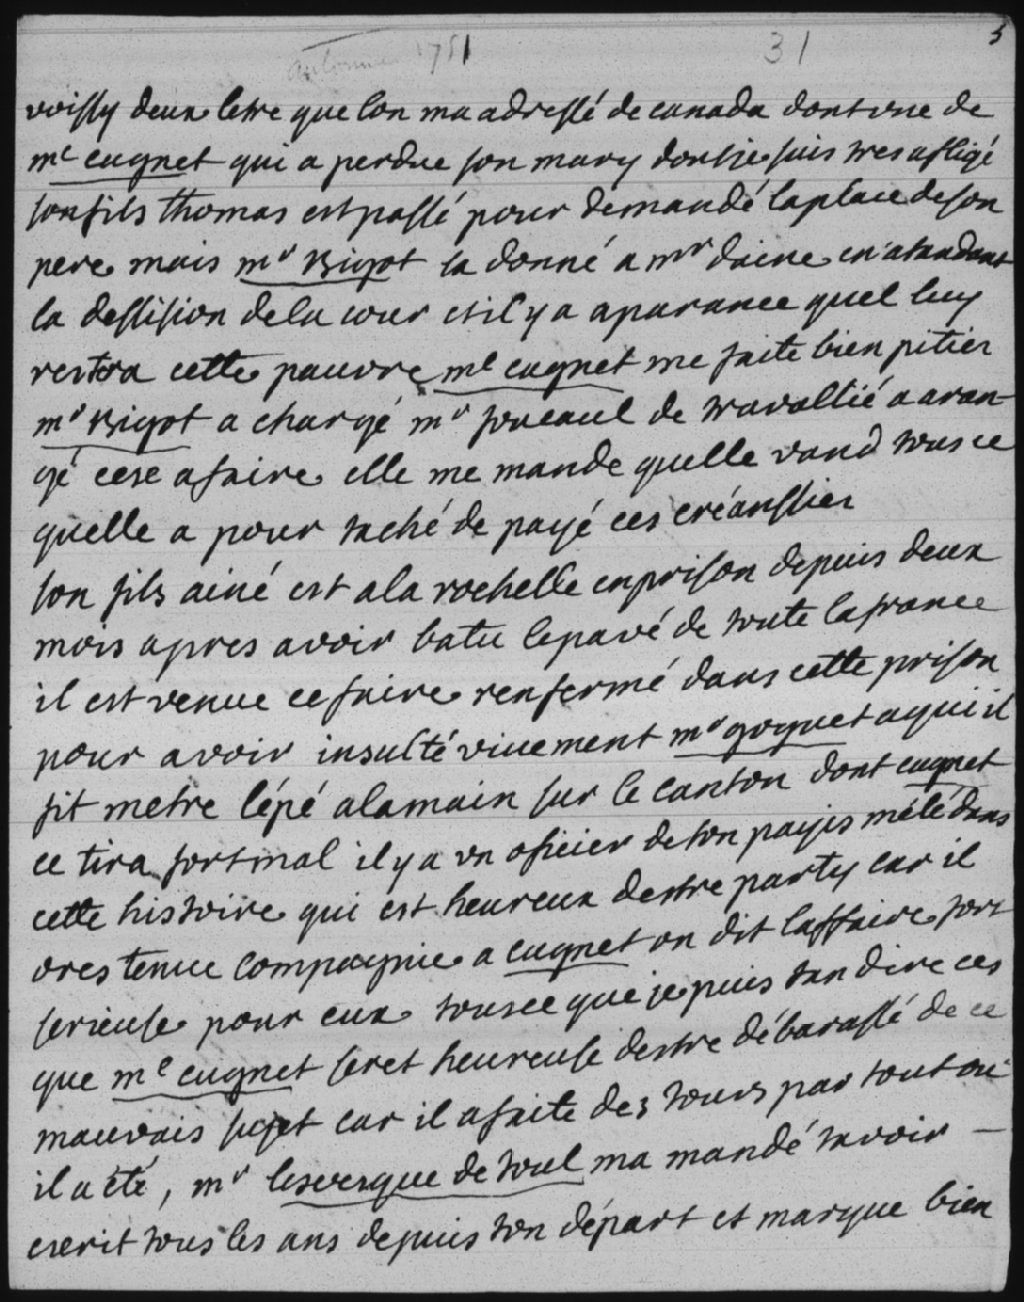 5
automne 1751 31
voissy deux letre que lon ma adressé de canada dont une de
me cugnet qui a perdue son mary dont je suis tres afligé
son fils thomas est passé pour demandé la place de son
pere mais mr Bigot la donné a mr daine en atandant
la dessision de la cour et il y a aparance quel luy
restera cette pauvre me cugnet me faite bien pitier
mr Bigot a chargé mr foucaul de travallié a aran-
gé cese afaire elle me mande quelle vand tous ce
quelle a pour taché de payé ces créanssier
son fils ainé est a la rochelle en prison depuis deux
mois apres avoir batu le pavé de toute la france
il est venue ce faire renfermé dans cette prison
pour avoir insulté vivement mr goguet a qui il
fit metre lépé a la main sur le canton dont cugnet
ce tira fort mal il y a un oficier de ton payis mélé dans
cette histoire qui est heureux destre party car il
ores tenue compagnie a cugnet on dit laffaire fort
serieuse pour eux tous ce que je puis tan dire ces
que me cugnet seret heureuse destre débarassé de ce
mauvais sujet car il a faite des tours par tout ou
il a été, mr lesvesque de toul ma mandé tavoir
escrit tous les ans depuis ton départ et marque bien